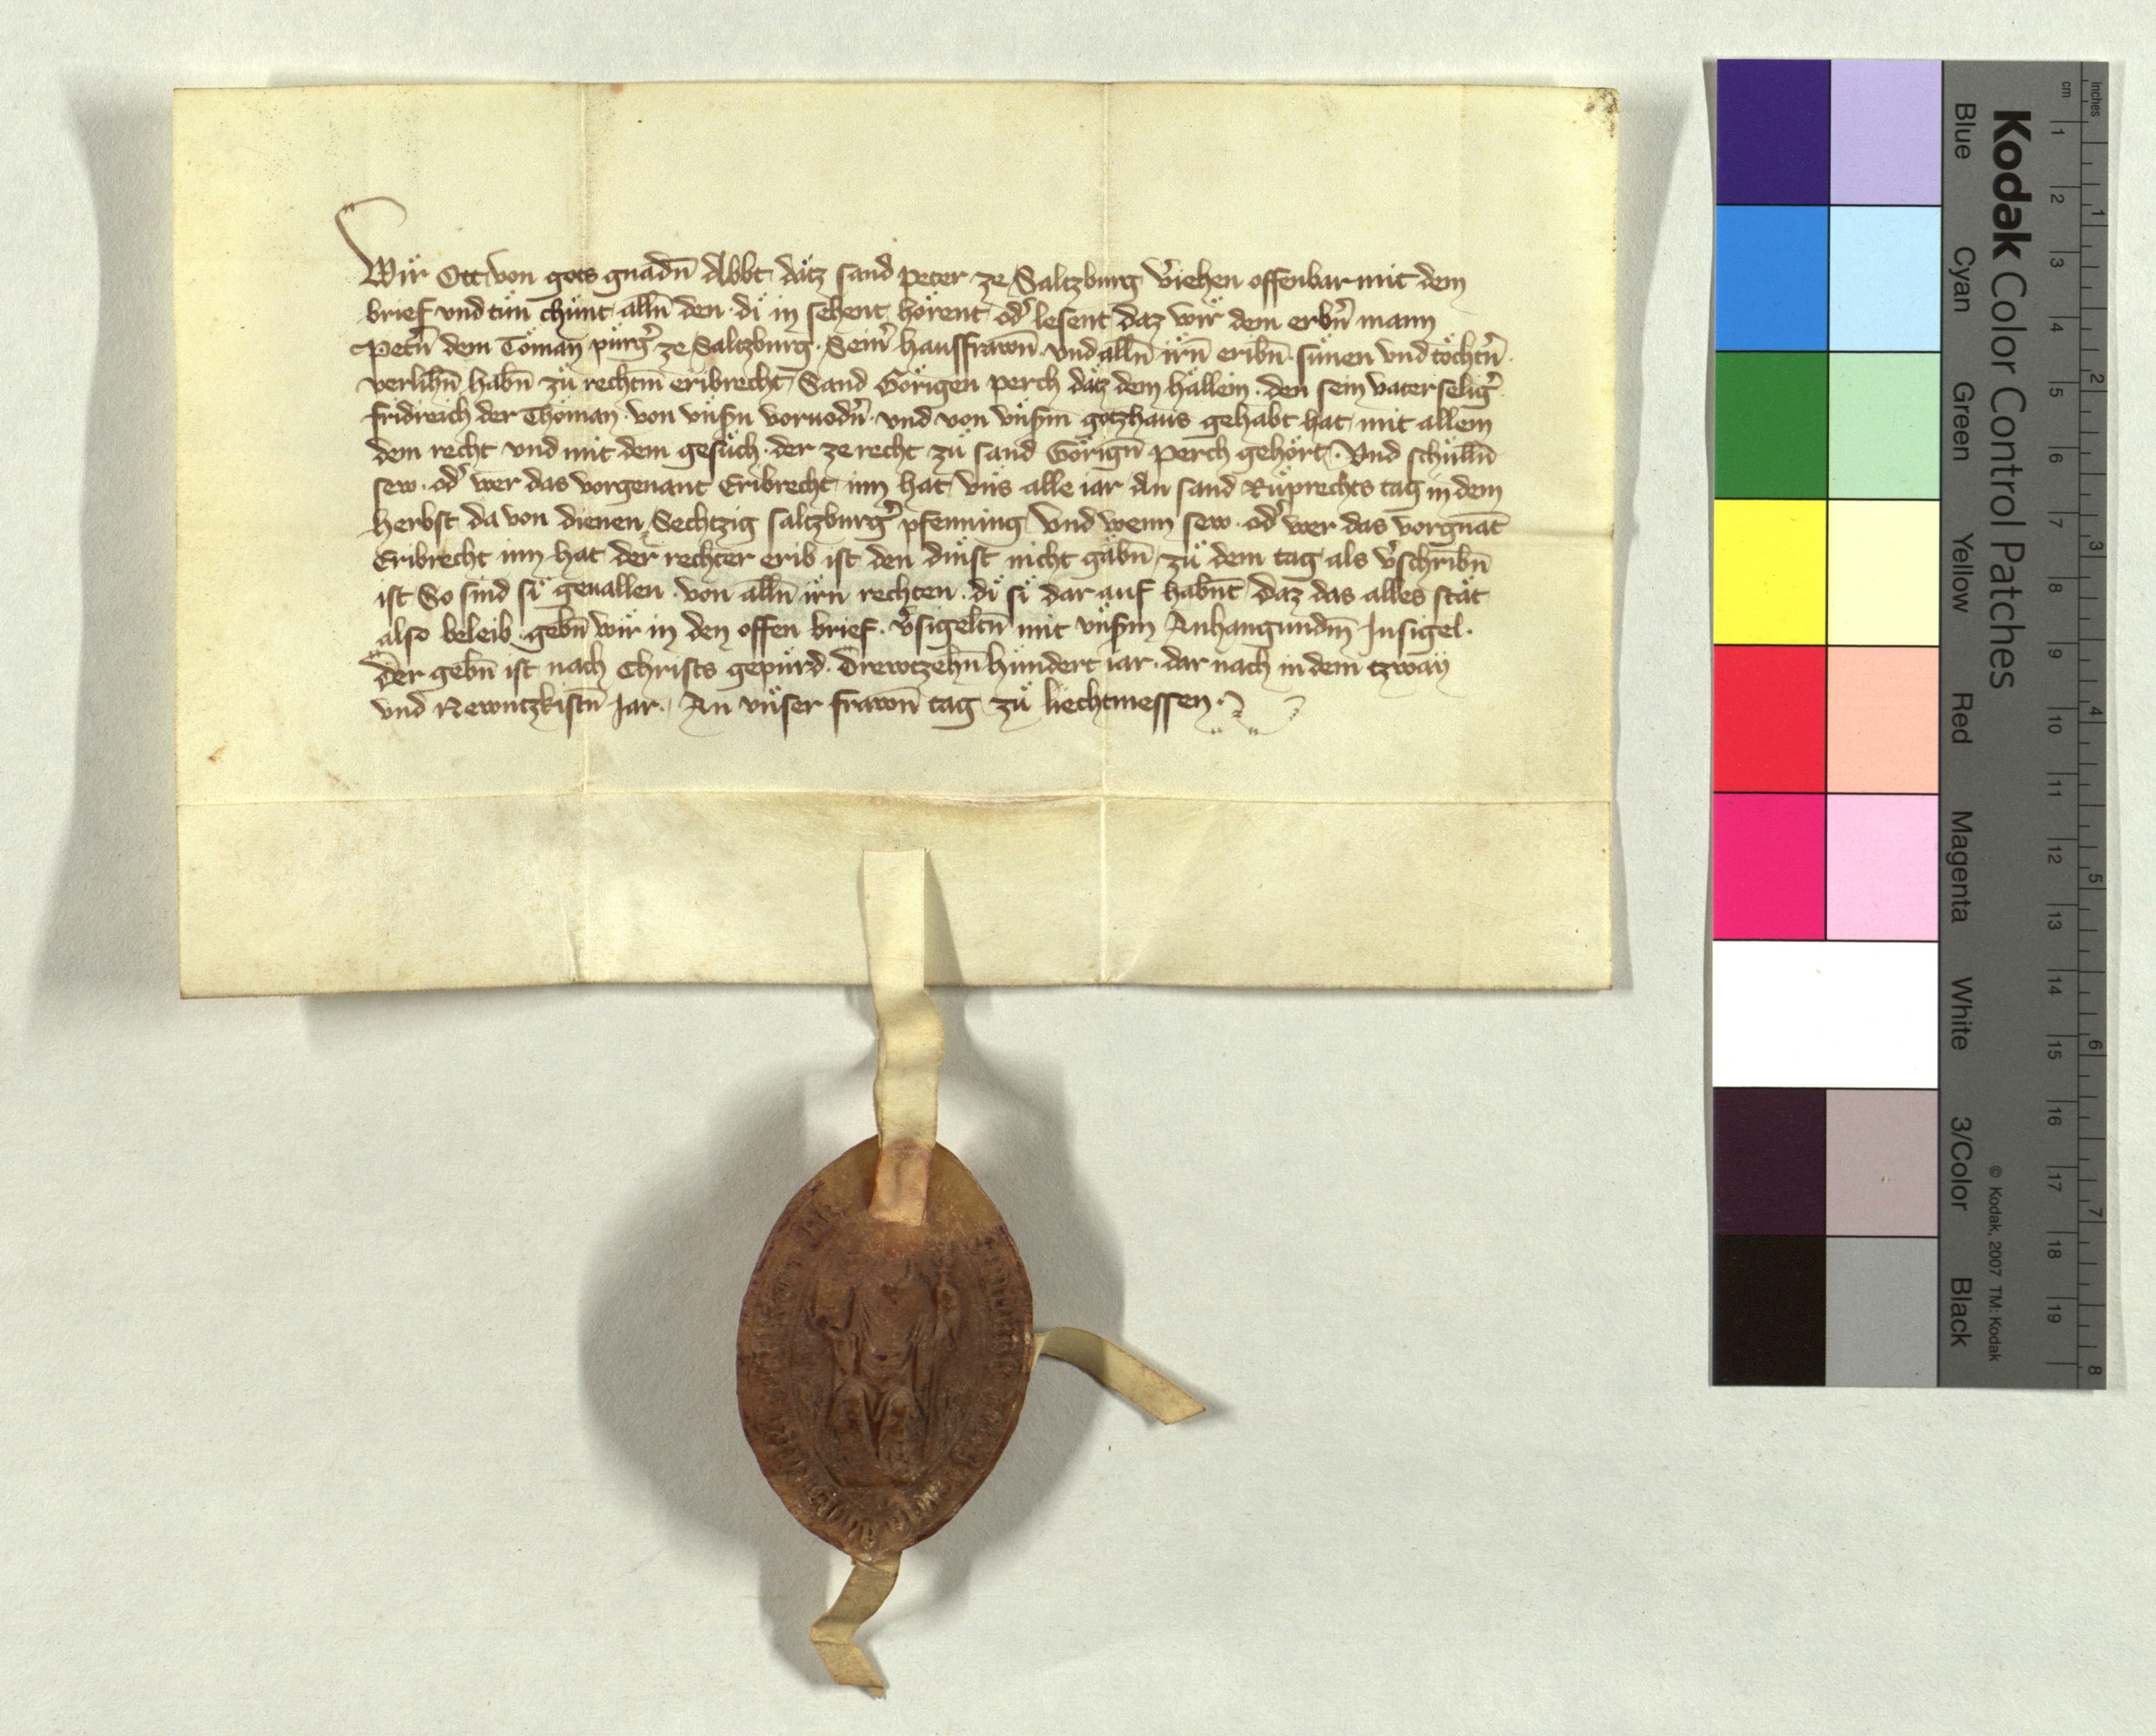 Wir Ott von gots gnadn̄ Abbt dätz sand peter ze Saltzburg v̓iehen offenbar mit dem
brief vnd tůn chůnt alln̄ den di in sehent hörent od̓ lesent daz wir dem erbn̓ mann
Petn̓ dem Toman pürg̓ ze Saltzburg Sein̓ hausfrawn̄ vnd alln̄ irn̄ eribn̄ sünen vnd töchtn̓
verlihn̄ habn̄ zů rechtm̄ eribrecht Sand Görigen perch dätz dem hällein den sein vater selig̓
fridreich der Thoman von vnsn̓ voruodn̓ vnd von vnsm̓ gotzhaus gehabt hat mit allem
dem recht vnd mit dem gesůch der ze recht zů sand Görign̄ perch gehört Vnd schülln̄
sew od̓ wer das vorgenant Eribrecht inn hat vns alle iar An sand Růprechts tag in dem
herbst da von dienen Sechtzig saltzburg̓ pfenning Vnd wenn sew od̓ wer das vorgnāt
Eribrecht inn hat der rechter erib ist den dinst nicht gäbn̄ zů dem tag als v̓schribn̄
ist So sind si geuallen von alln̄ irn̄ rechten di si dar auf habn̄t Daz das alles stät
also beleib gebn̄ wir in den offen brief v̓sigeltn̄ mit vnsm̓ Anhangundm̄ Insigel
Der gebn̄ ist nach Christs gepürd Drewtzehn̄ hundert iar dar nach in dem tzway
vnd Newntzkistn̄ Jar An vnser frawn̄ tag zů liechtmessen
Kodak Color Control Patches
Blue Cyan Green Yellow Red Magenta White 3/Color Black
© Kodak, 2007 TM: Kodak
inches 1 2 3 4 5 6 7 8
cm 1 2 3 4 5 6 7 8 9 10 11 12 13 14 15 16 17 18 19